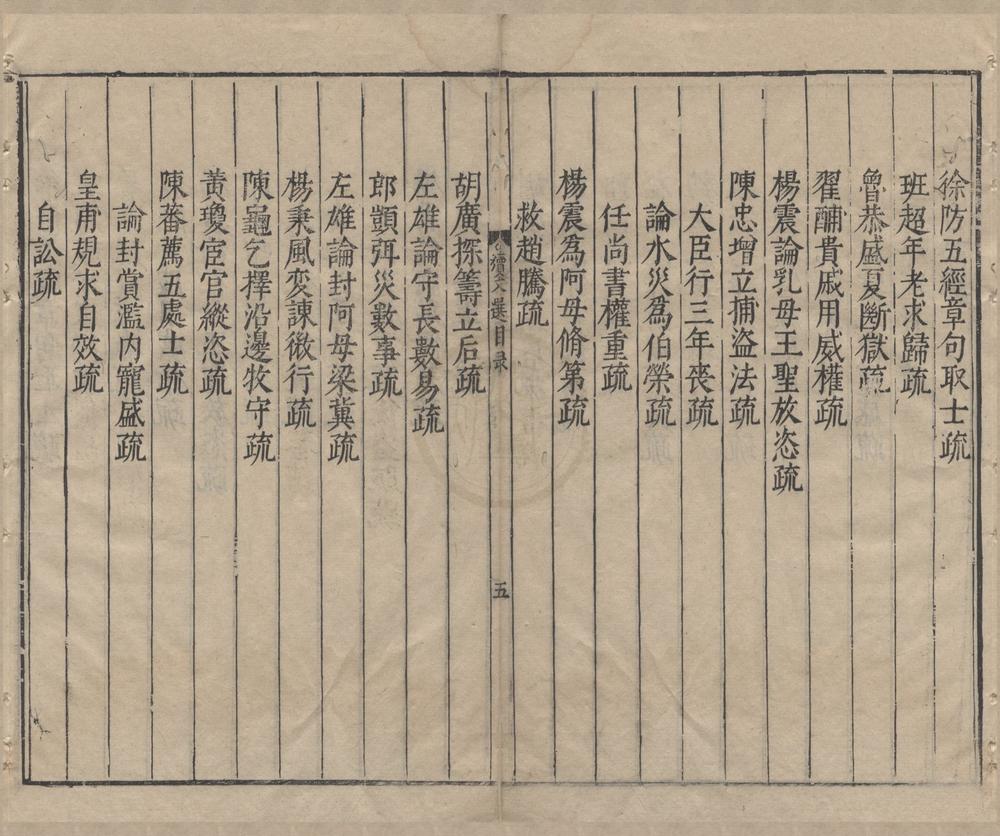 徐防五經章句取士疏
班超年老求歸疏
魯恭盛夏斷獄疏
翟酺貴戚用威權疏
楊震論乳母王聖放恣疏
陳忠增立捕盜法疏
大臣行三年喪疏
論水災爲伯榮疏
任尚書權重疏
楊震爲阿母脩第疏
救趙騰疏
續文選目录
五
胡廣探籌立后疏
左雄論守長數易疏
郎顗弭災數事疏
左雄論封阿母梁冀疏
楊秉風变諫微行疏
陳龜乞擇沿邊牧守疏
黃瓊宦官縱恣疏
陳蕃薦五處士疏
論封賞濫内寵盛疏
皇甫規求自效疏
自訟疏